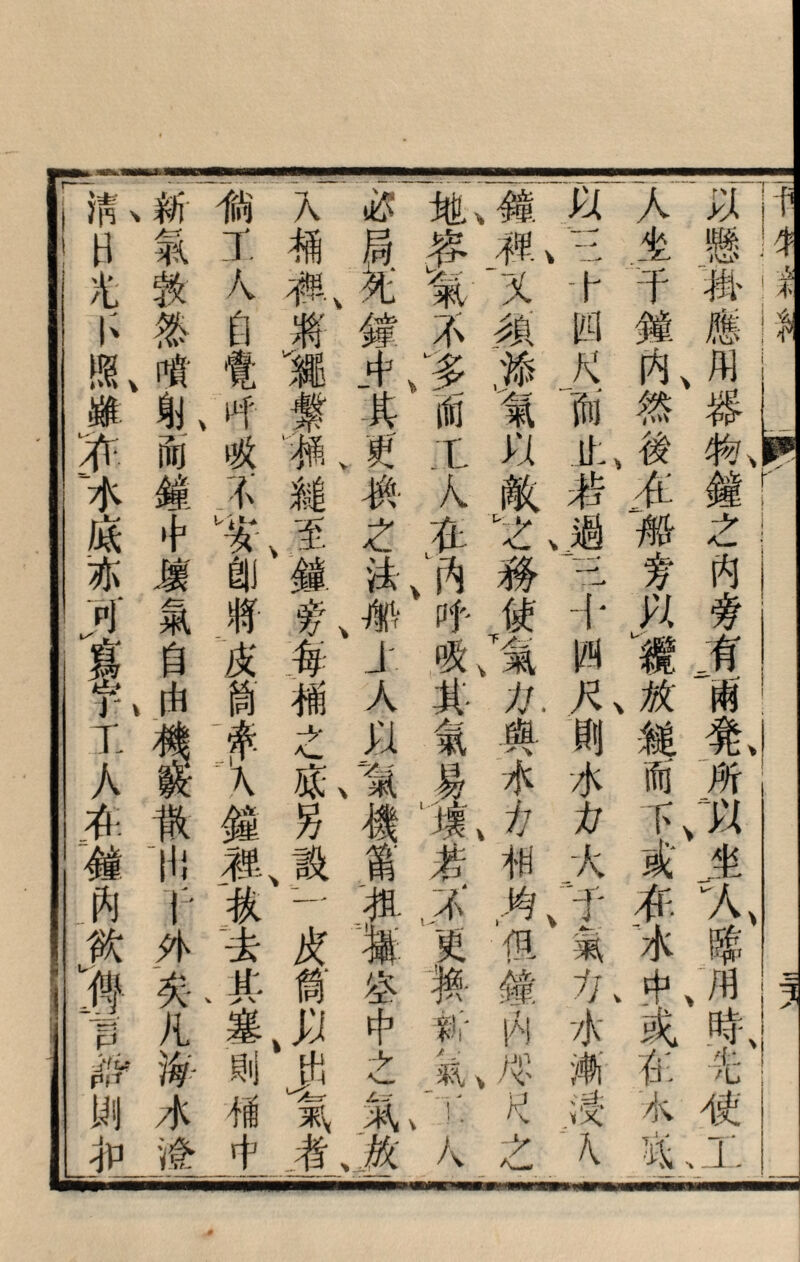 博物新編
以懸掛應用器物、鐘之內旁有兩凳、所以坐人、臨用時、先使工
人坐于鐘內、然後在船旁以纜放縋而下、或在水中、或在水底、
以三十四尺而止、若過三十四尺、則水力大于氣力、水漸浸入
鐘裡、又須添氣以敵之、務使氣力與水力相均、但鐘內咫尺之
地、容氣不多、而工人在內呼吸、其氣易壞、若不更換新氣、工人
必局死鐘中、其更換之法、船上人以氣機筩抯攝空中之氣、放
入桶裡、將繩繫桶、縋至鐘旁、每桶之底、另設一皮筒以出氣者、
倘工人自覺呼吸不安、卽將皮筒牽入鐘裡、拔去其塞、則桶中
新氣敦然噴射、而鐘中壞氣自由機竅散出于外矣、凡海水澄
淸、日光下照、雖在水底亦可寫字、工人在鐘內欲傳言語則扣